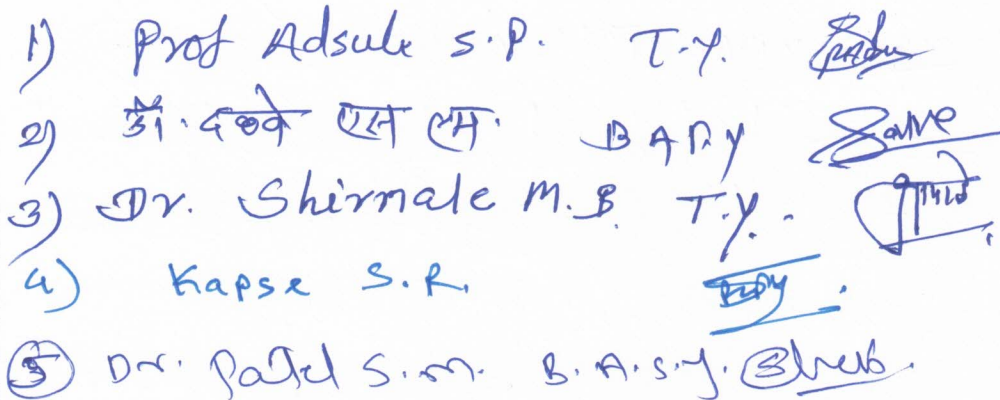 1) Prof Adsule S.P. T.Y.
2) डॉ. दळवे एस एम. B A F.Y
3) Dr. Shirmale M.B. T.Y.
4) Kapse S.R.
5) Dr. Patel S.M. B.A.S.Y.